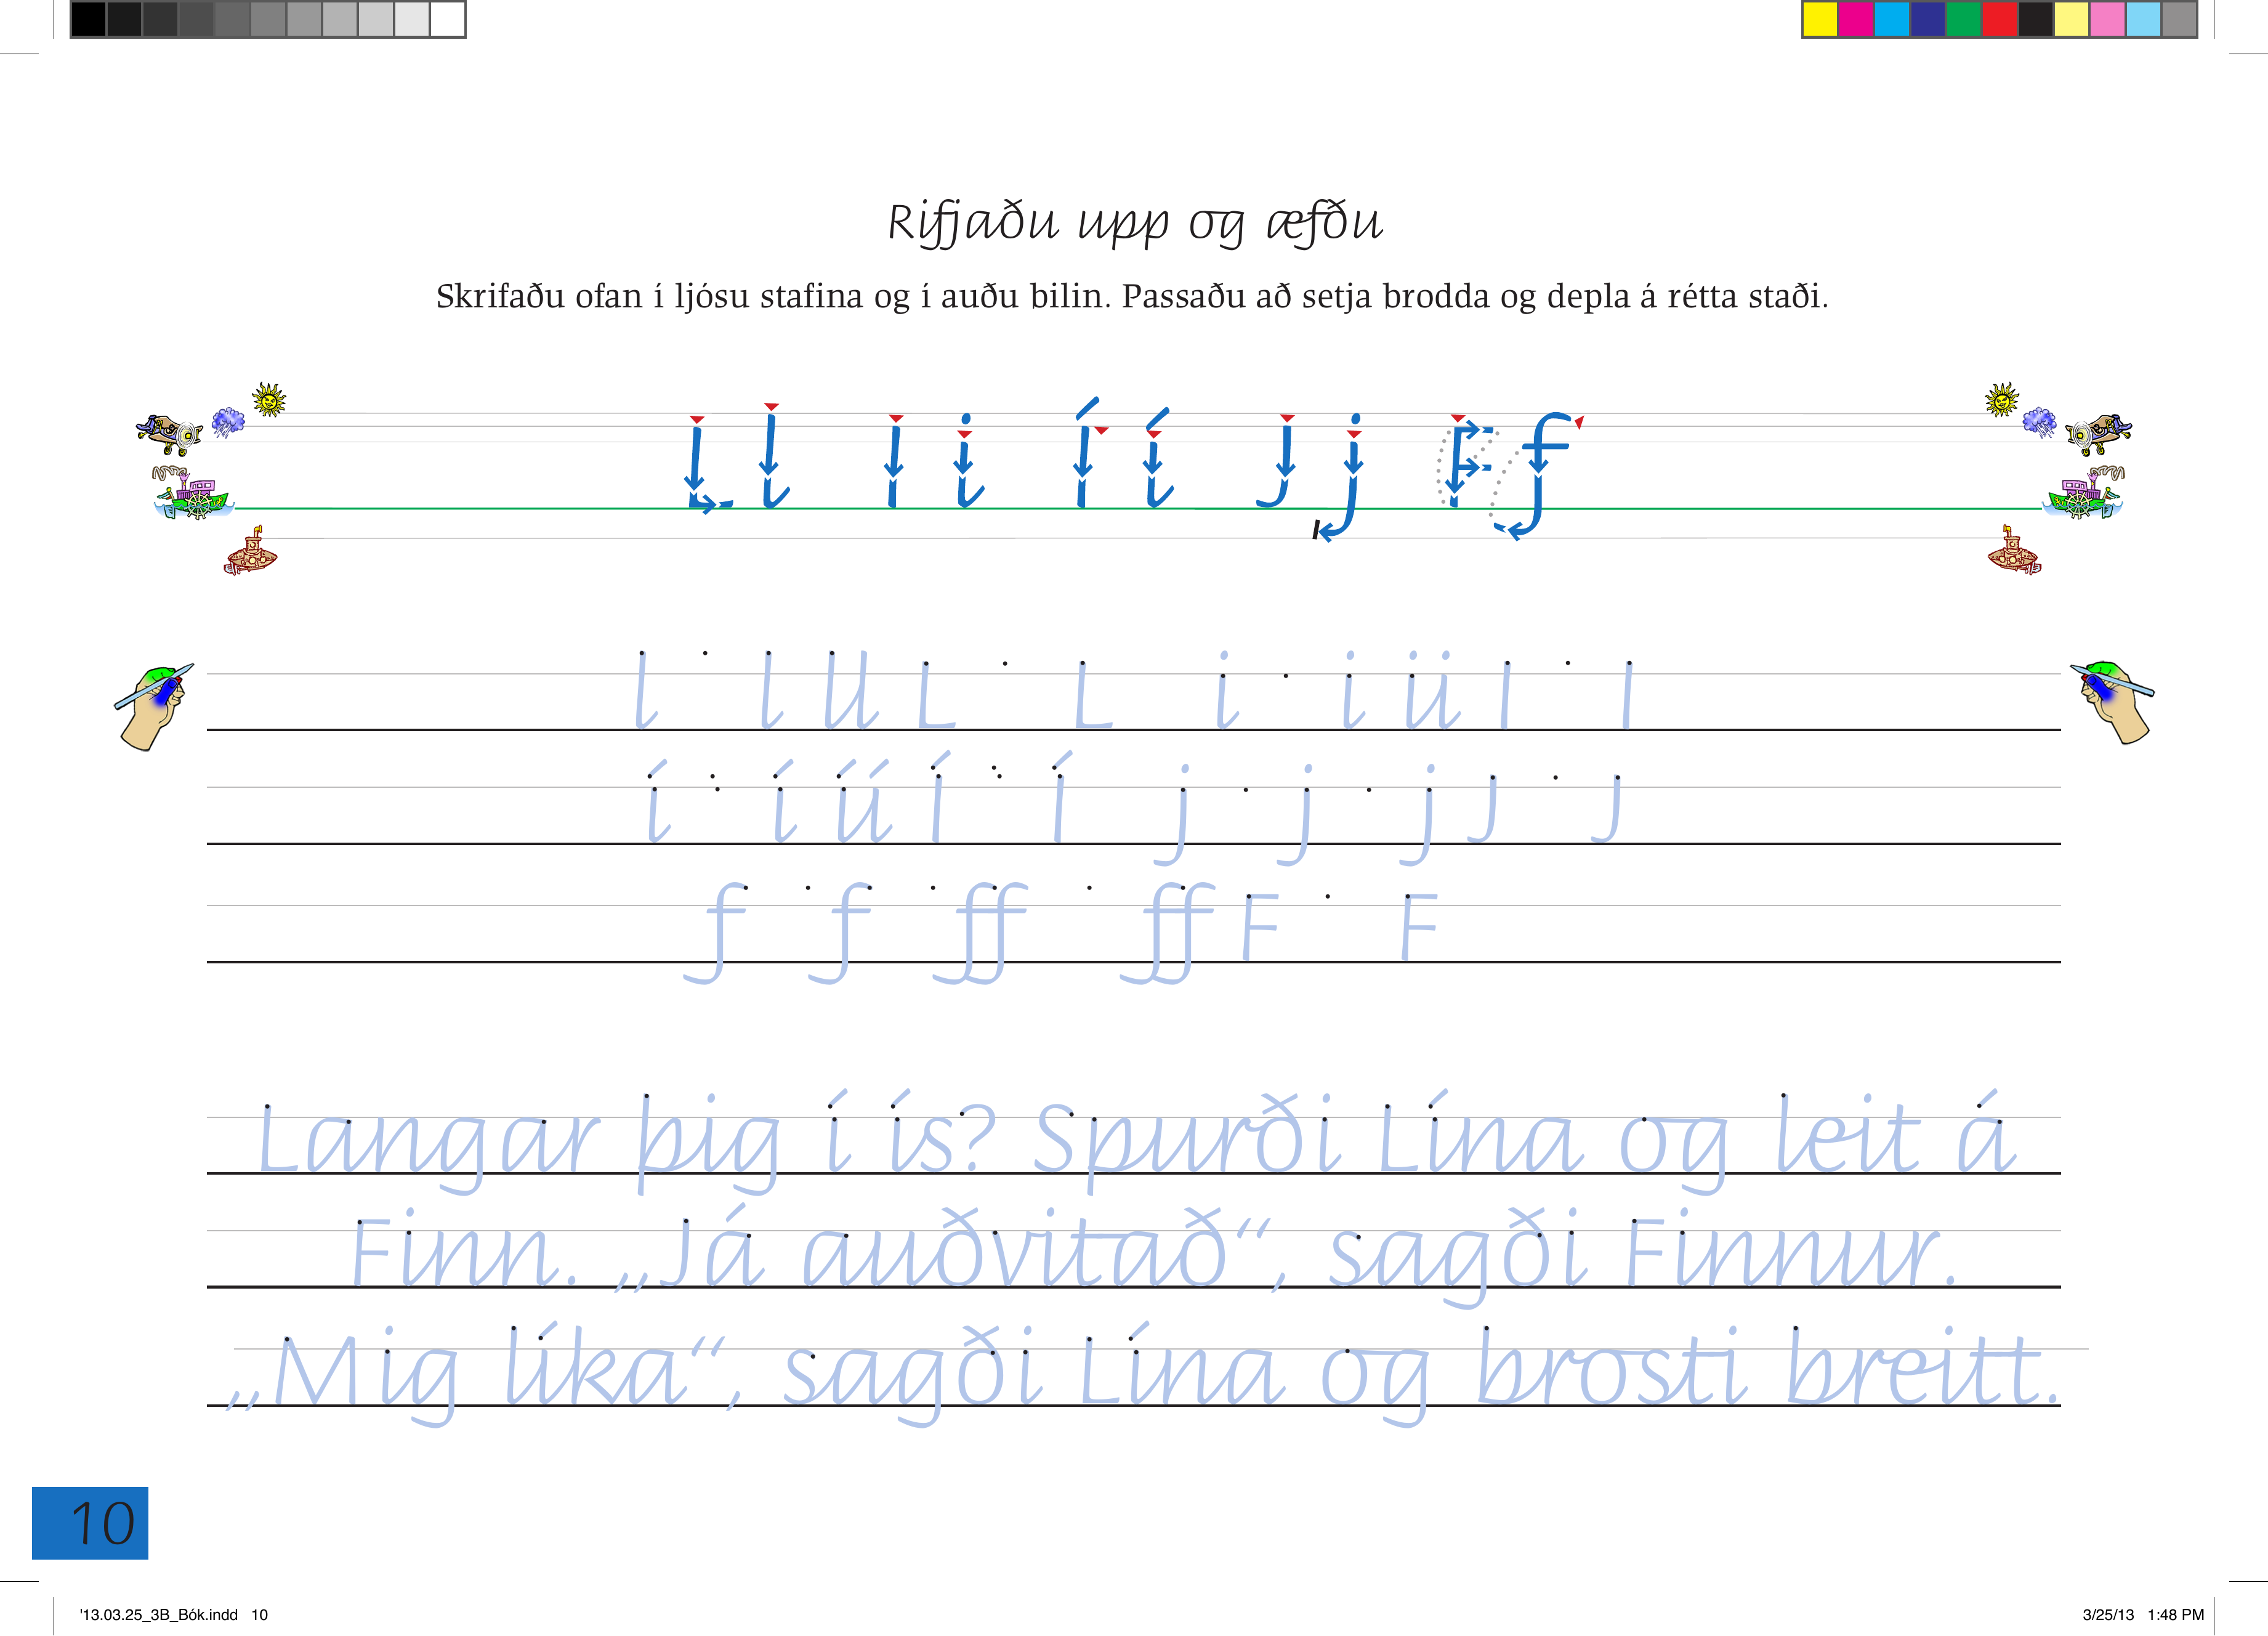 Rifjaðu upp og æfðu
Skrifaðu ofan í ljósu stafina og í auðu bilin. Passaðu að setja brodda og depla á rétta staði.
L l I i Í í J j F f
l l ll L L i i ii I I
í í íí Í Í j j j J J
f f ff ff F F
Langar þig í ís? Spurði Lína og leit á
Finn. „Já auðvitað“, sagði Finnur.
„Mig líka“, sagði Lína og brosti breitt.
10
'13.03.25_3B_Bók.indd 10
3/25/13 1:48 PM